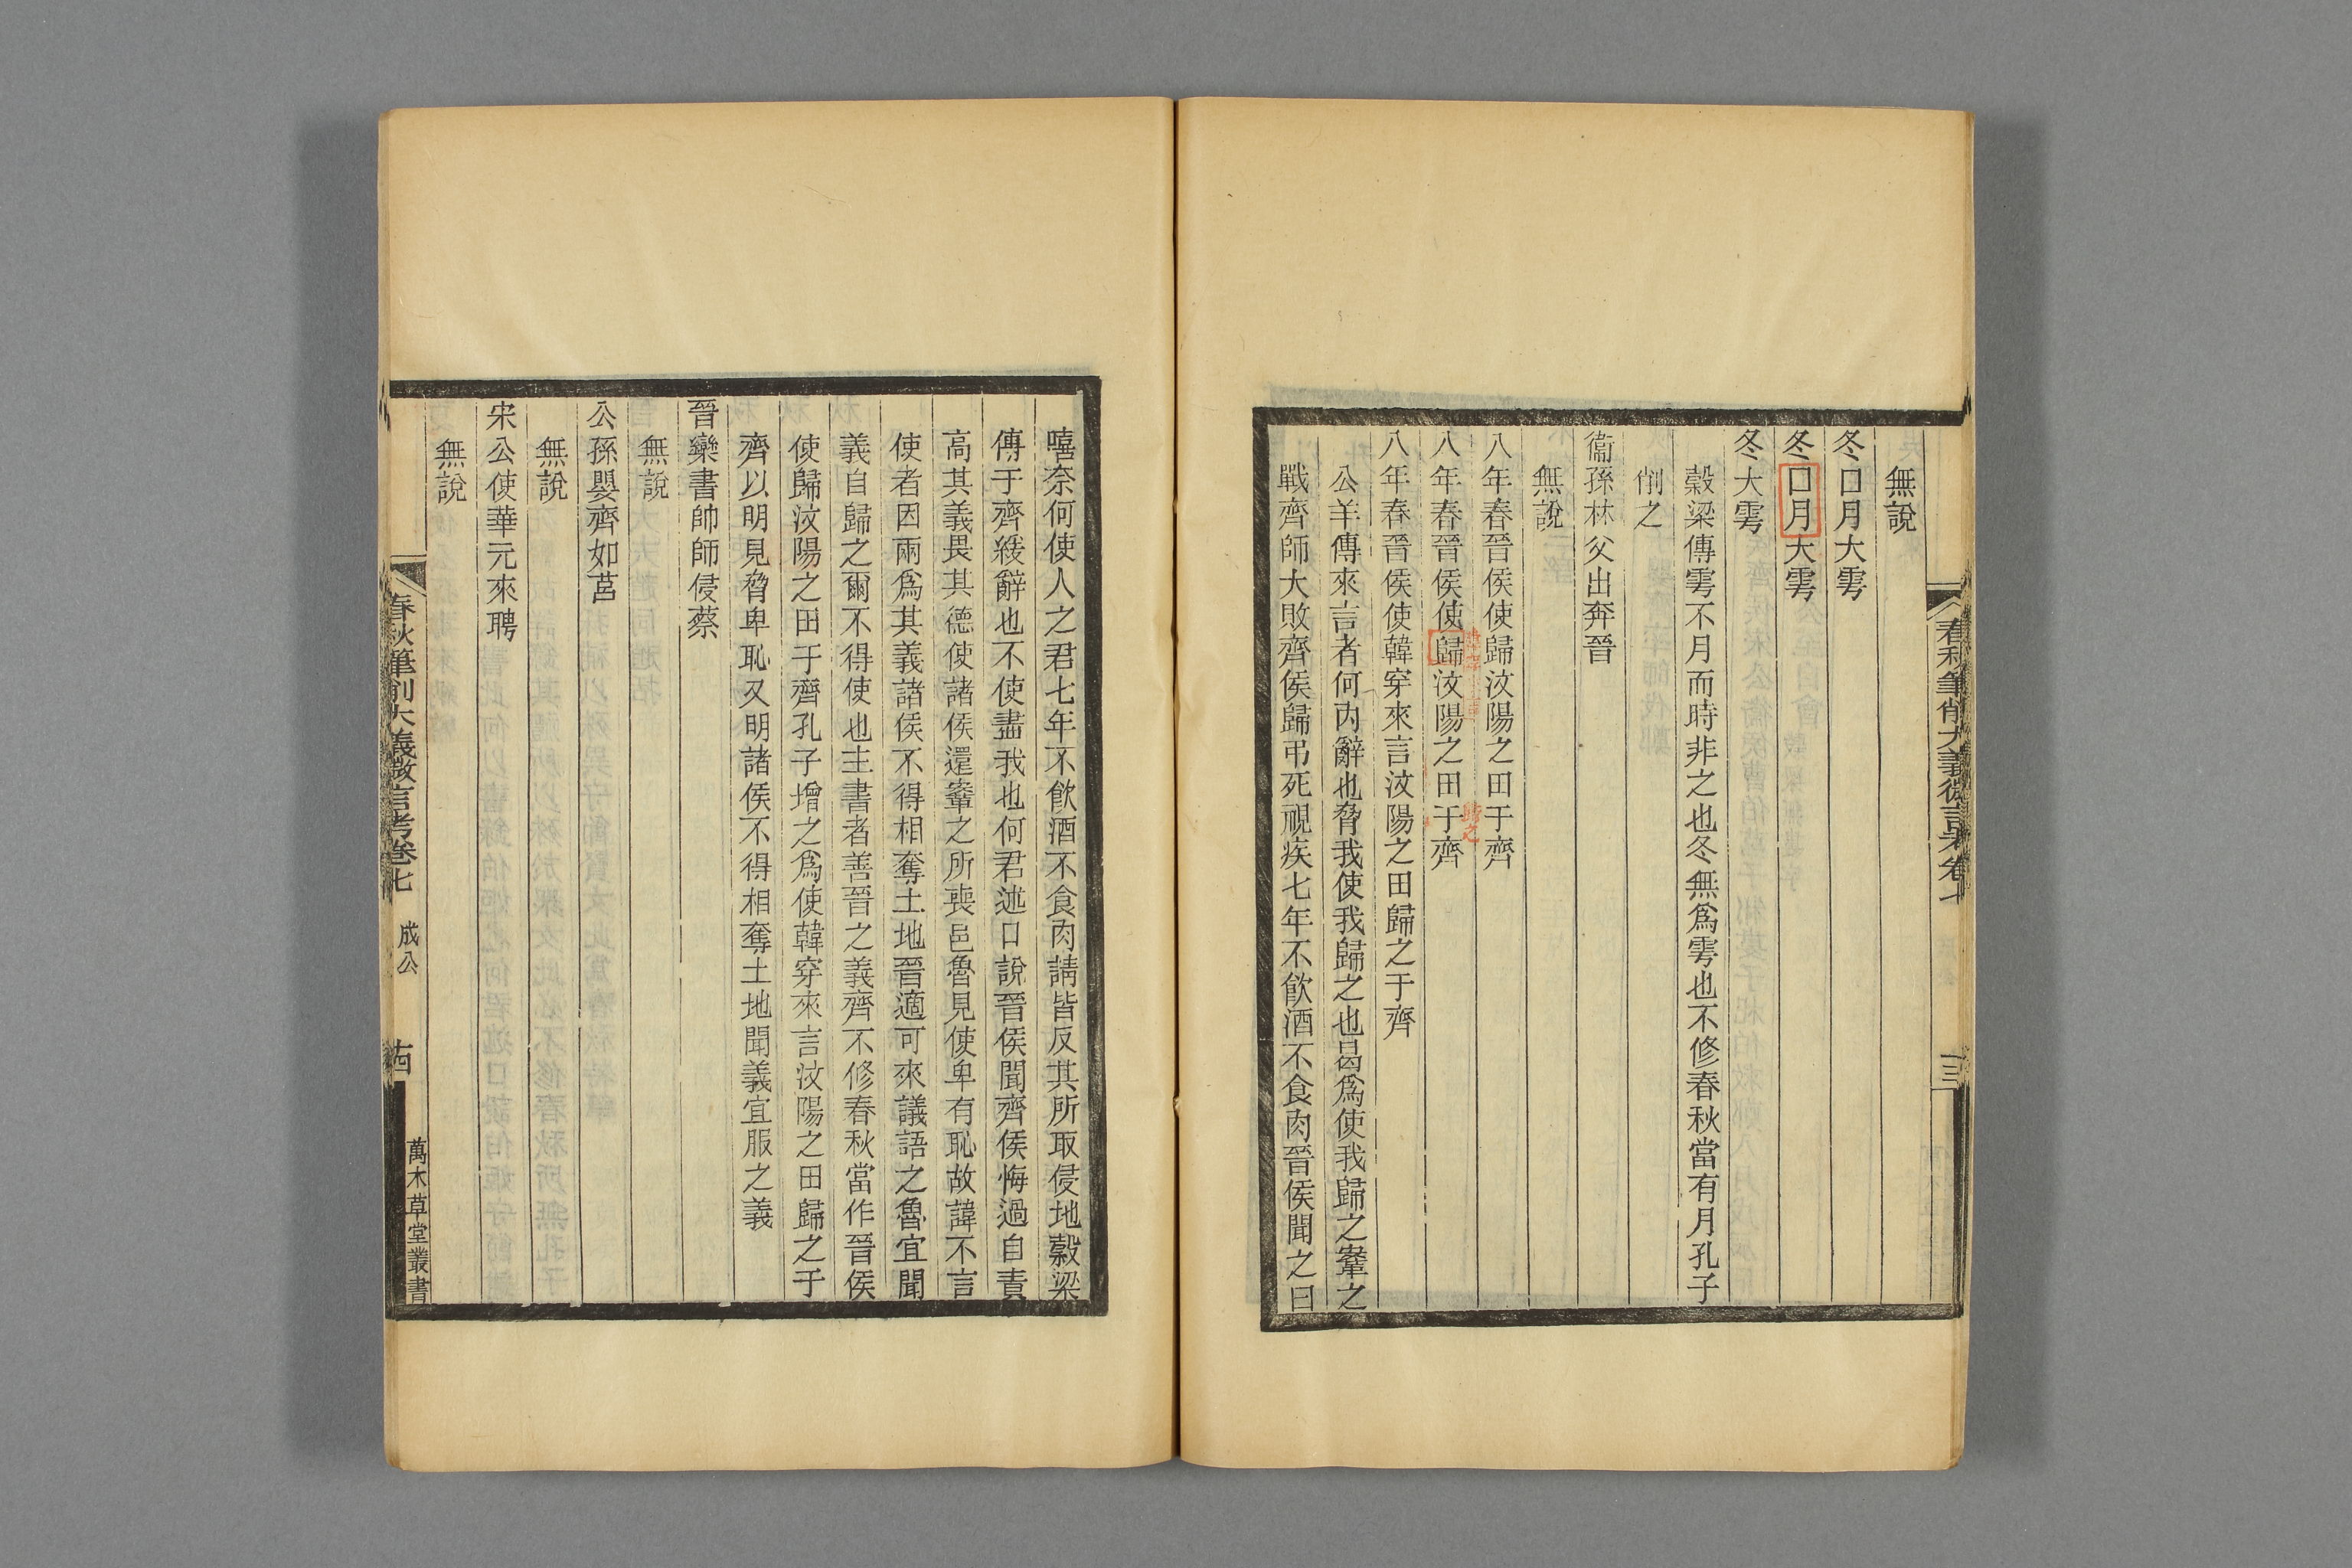 春秋筆削大義微言考卷七
十三
無說
冬口月大雩
冬口月大雩
冬大雩
穀梁傳雩不月而時非之也冬無爲雩也不修春秋當有月孔子
削之
衞孫林父出奔晉
無說
八年春晉侯使歸汶陽之田于齊
八年春晉侯使歸汶陽之田于齊
歸之
八年春晉侯使韓穿來言汶陽之田歸之于齊
公羊傳來言者何內辭也脅我使我歸之也曷爲使我歸之鞌之
戰齊師大敗齊侯歸弔死視疾七年不飮酒不食肉晉侯聞之曰
嘻奈何使人之君七年不飮酒不食肉請皆反其所取侵地穀梁
傳于齊緩辭也不使盡我也何君述口說晉侯聞齊侯悔過自責
高其義畏其德使諸侯還鞌之所喪邑魯見使卑有恥故諱不言
使者因兩爲其義諸侯不得相奪土地晉適可來議語之魯宜聞
義自歸之爾不得使也主書者善晉之義齊不修春秋當作晉侯
使歸汶陽之田于齊孔子增之爲使韓穿來言汶陽之田歸之于
齊以明見脅卑恥又明諸侯不得相奪土地聞義宜服之義
晉欒書帥師侵蔡
無說
公孫嬰齊如莒
無說
宋公使華元來聘
無說
春秋筆削大義微言考卷七 成公 十四 萬木草堂叢書